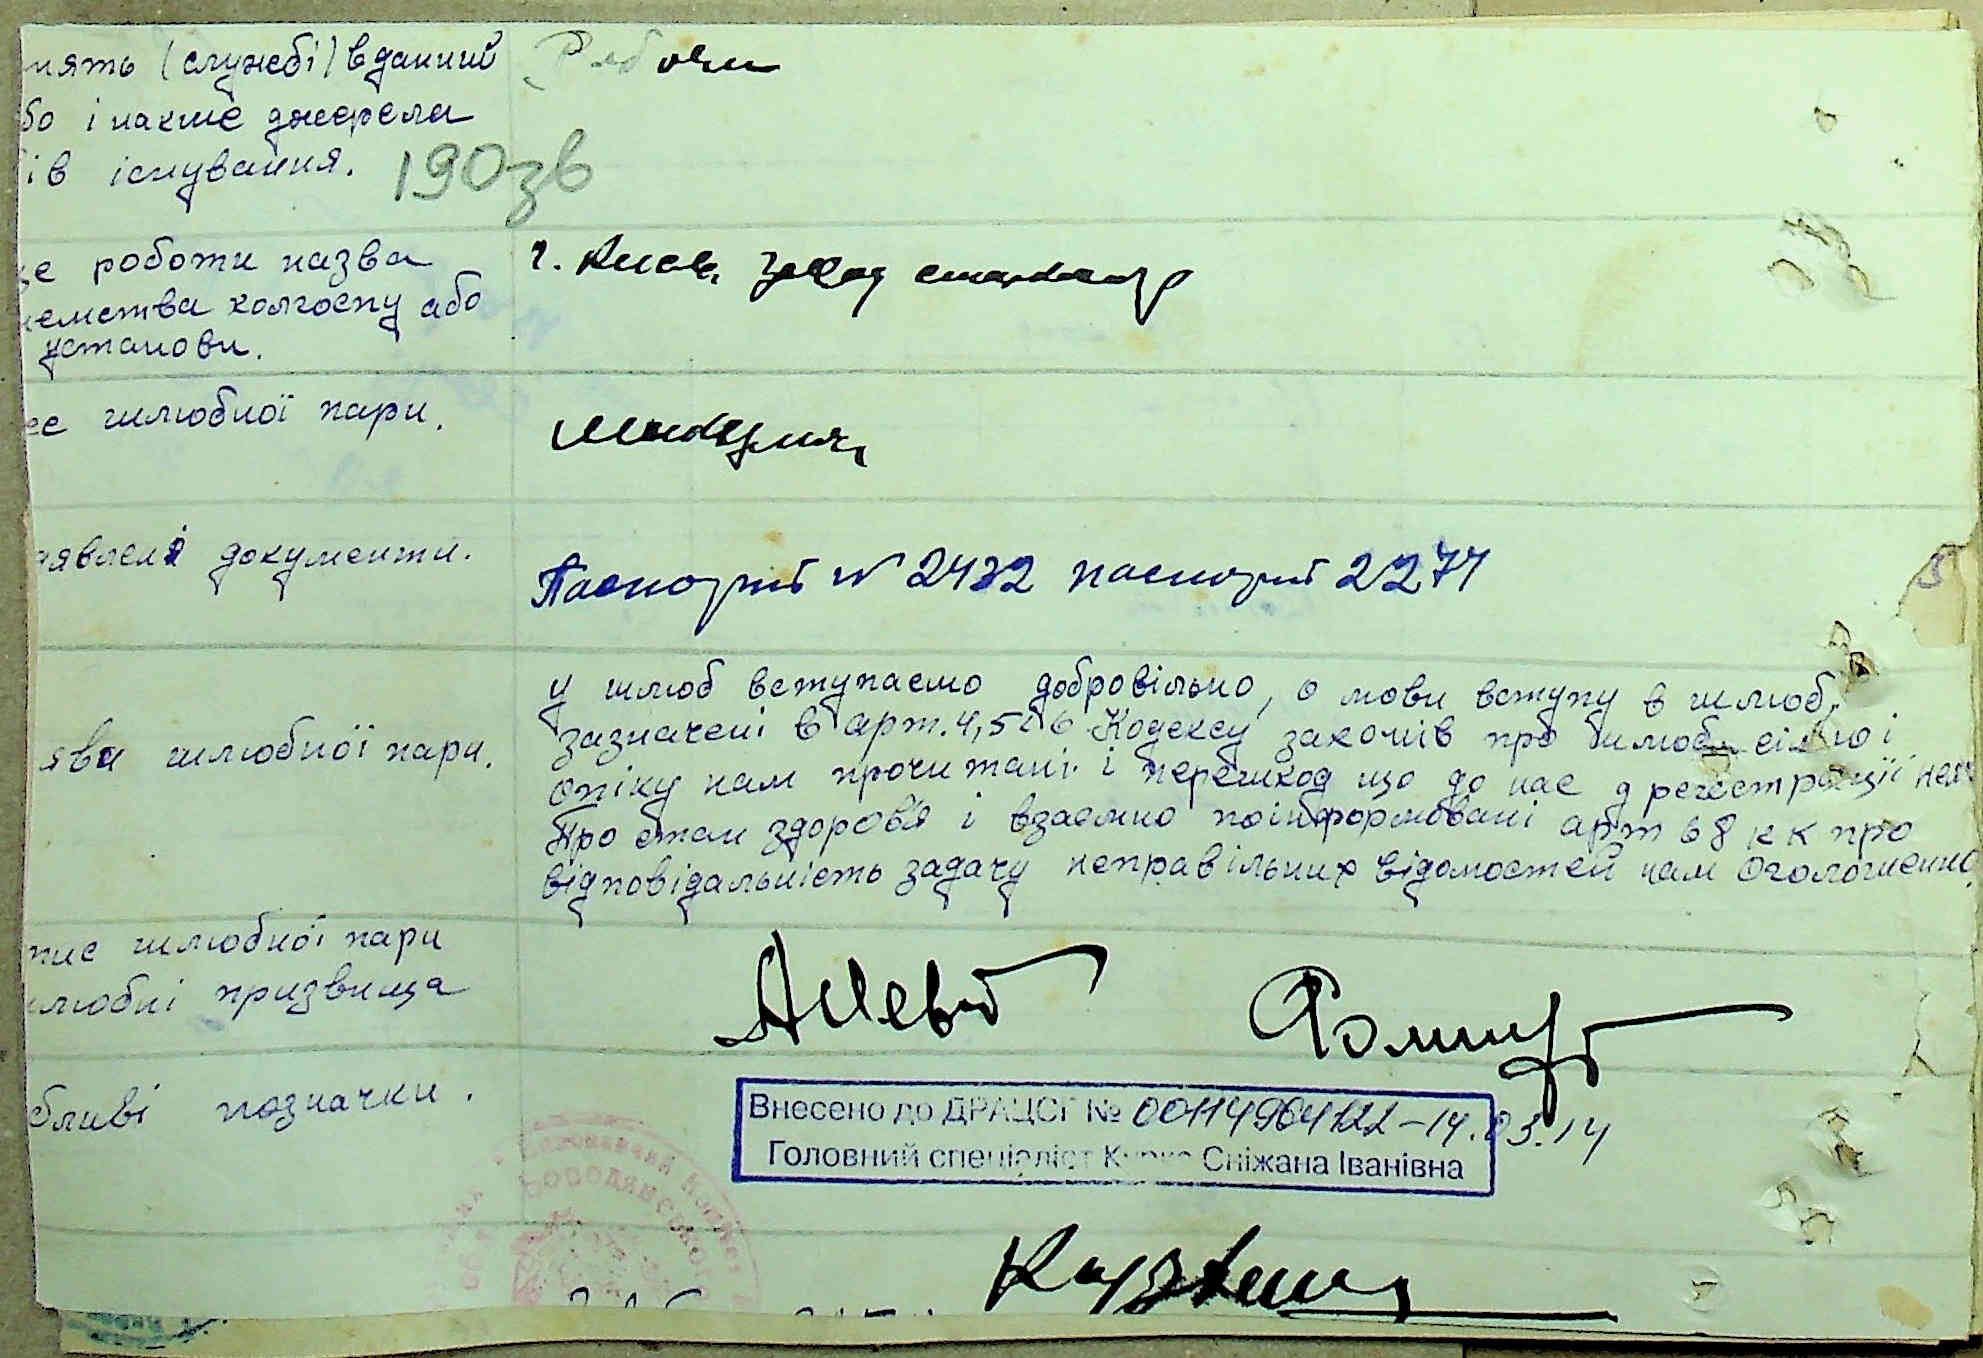 нять (службі) в даний
бо інакше джерела
ів існування.
190зв
Рабочи
це роботи назва
ємства колгоспу або
установи.
г. Киев завод
ес шлюбної пари.
явлені документи.
Паспорт № 2432 паспорт 2277
ява шлюбної пари.
У шлюб вступаємо добровільно, о мови вступу в шлюб,
зазначені в арт. 4, 5 і 6 Кодексу законів про шлюб сімю і
опіку нам прочитані і перешкод що до нас д регестрації нема
Про стан здоров'я і взаємно поінформовані арт 68 КК про
відповідальність задачу неправільних відомостей нам Оголошенно.
пис шлюбної пари
шлюбні призвища
бливі позначки.
Внесено до ДРАЦСГ № 00114964122-14.03.14
Головний спеціаліст Сніжана Іванівна
Бородянського